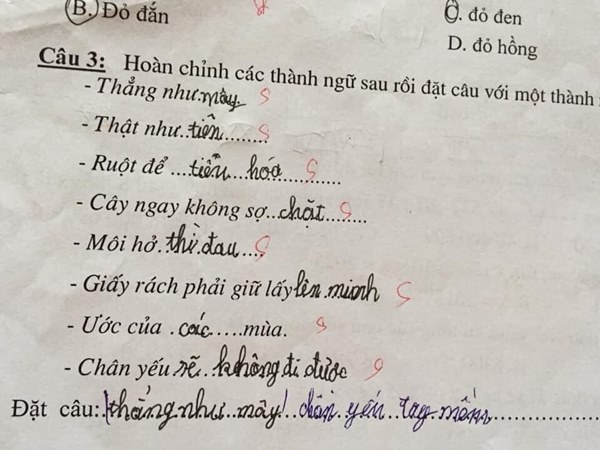 B. Đỏ đắn
C. đỏ đen
D. đỏ hồng
Câu 3: Hoàn chỉnh các thành ngữ sau rồi đặt câu với một thành
- Thẳng như..mày.
- Thật như..tiên........
- Ruột để ...tiêu...hóa............
- Cây ngay không sợ..chặt.........
- Môi hở.thì.đau....
- Giấy rách phải giữ lấy lên.mionh
- Ước của .các.....mùa.
- Chân yếu sẽ..không đi được
Đặt câu:(thẳng như..mây) chân.yếu..tay-mềm...............